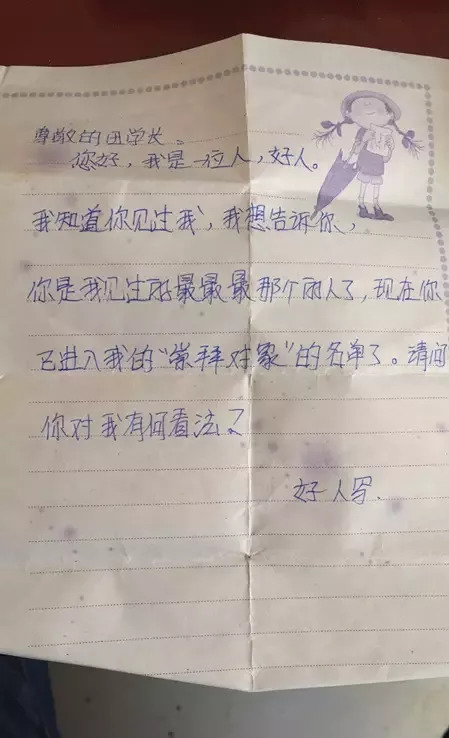 尊敬的田学长:
您好，我是一位人，好人。
我知道你见过我，我想告诉你，
你是我见过的最最最那个的人了，现在你
已进入我的“崇拜对象”的名单了。请问
你对我有何看法？
好人写.